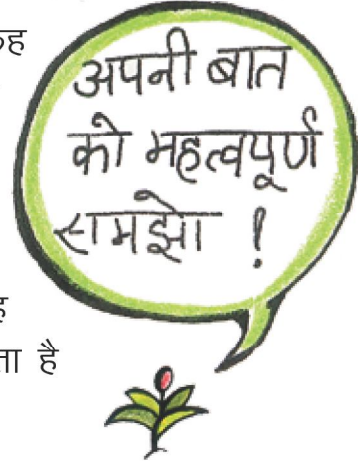 अपनी बात
को महत्वपूर्ण
समझो !
ता है